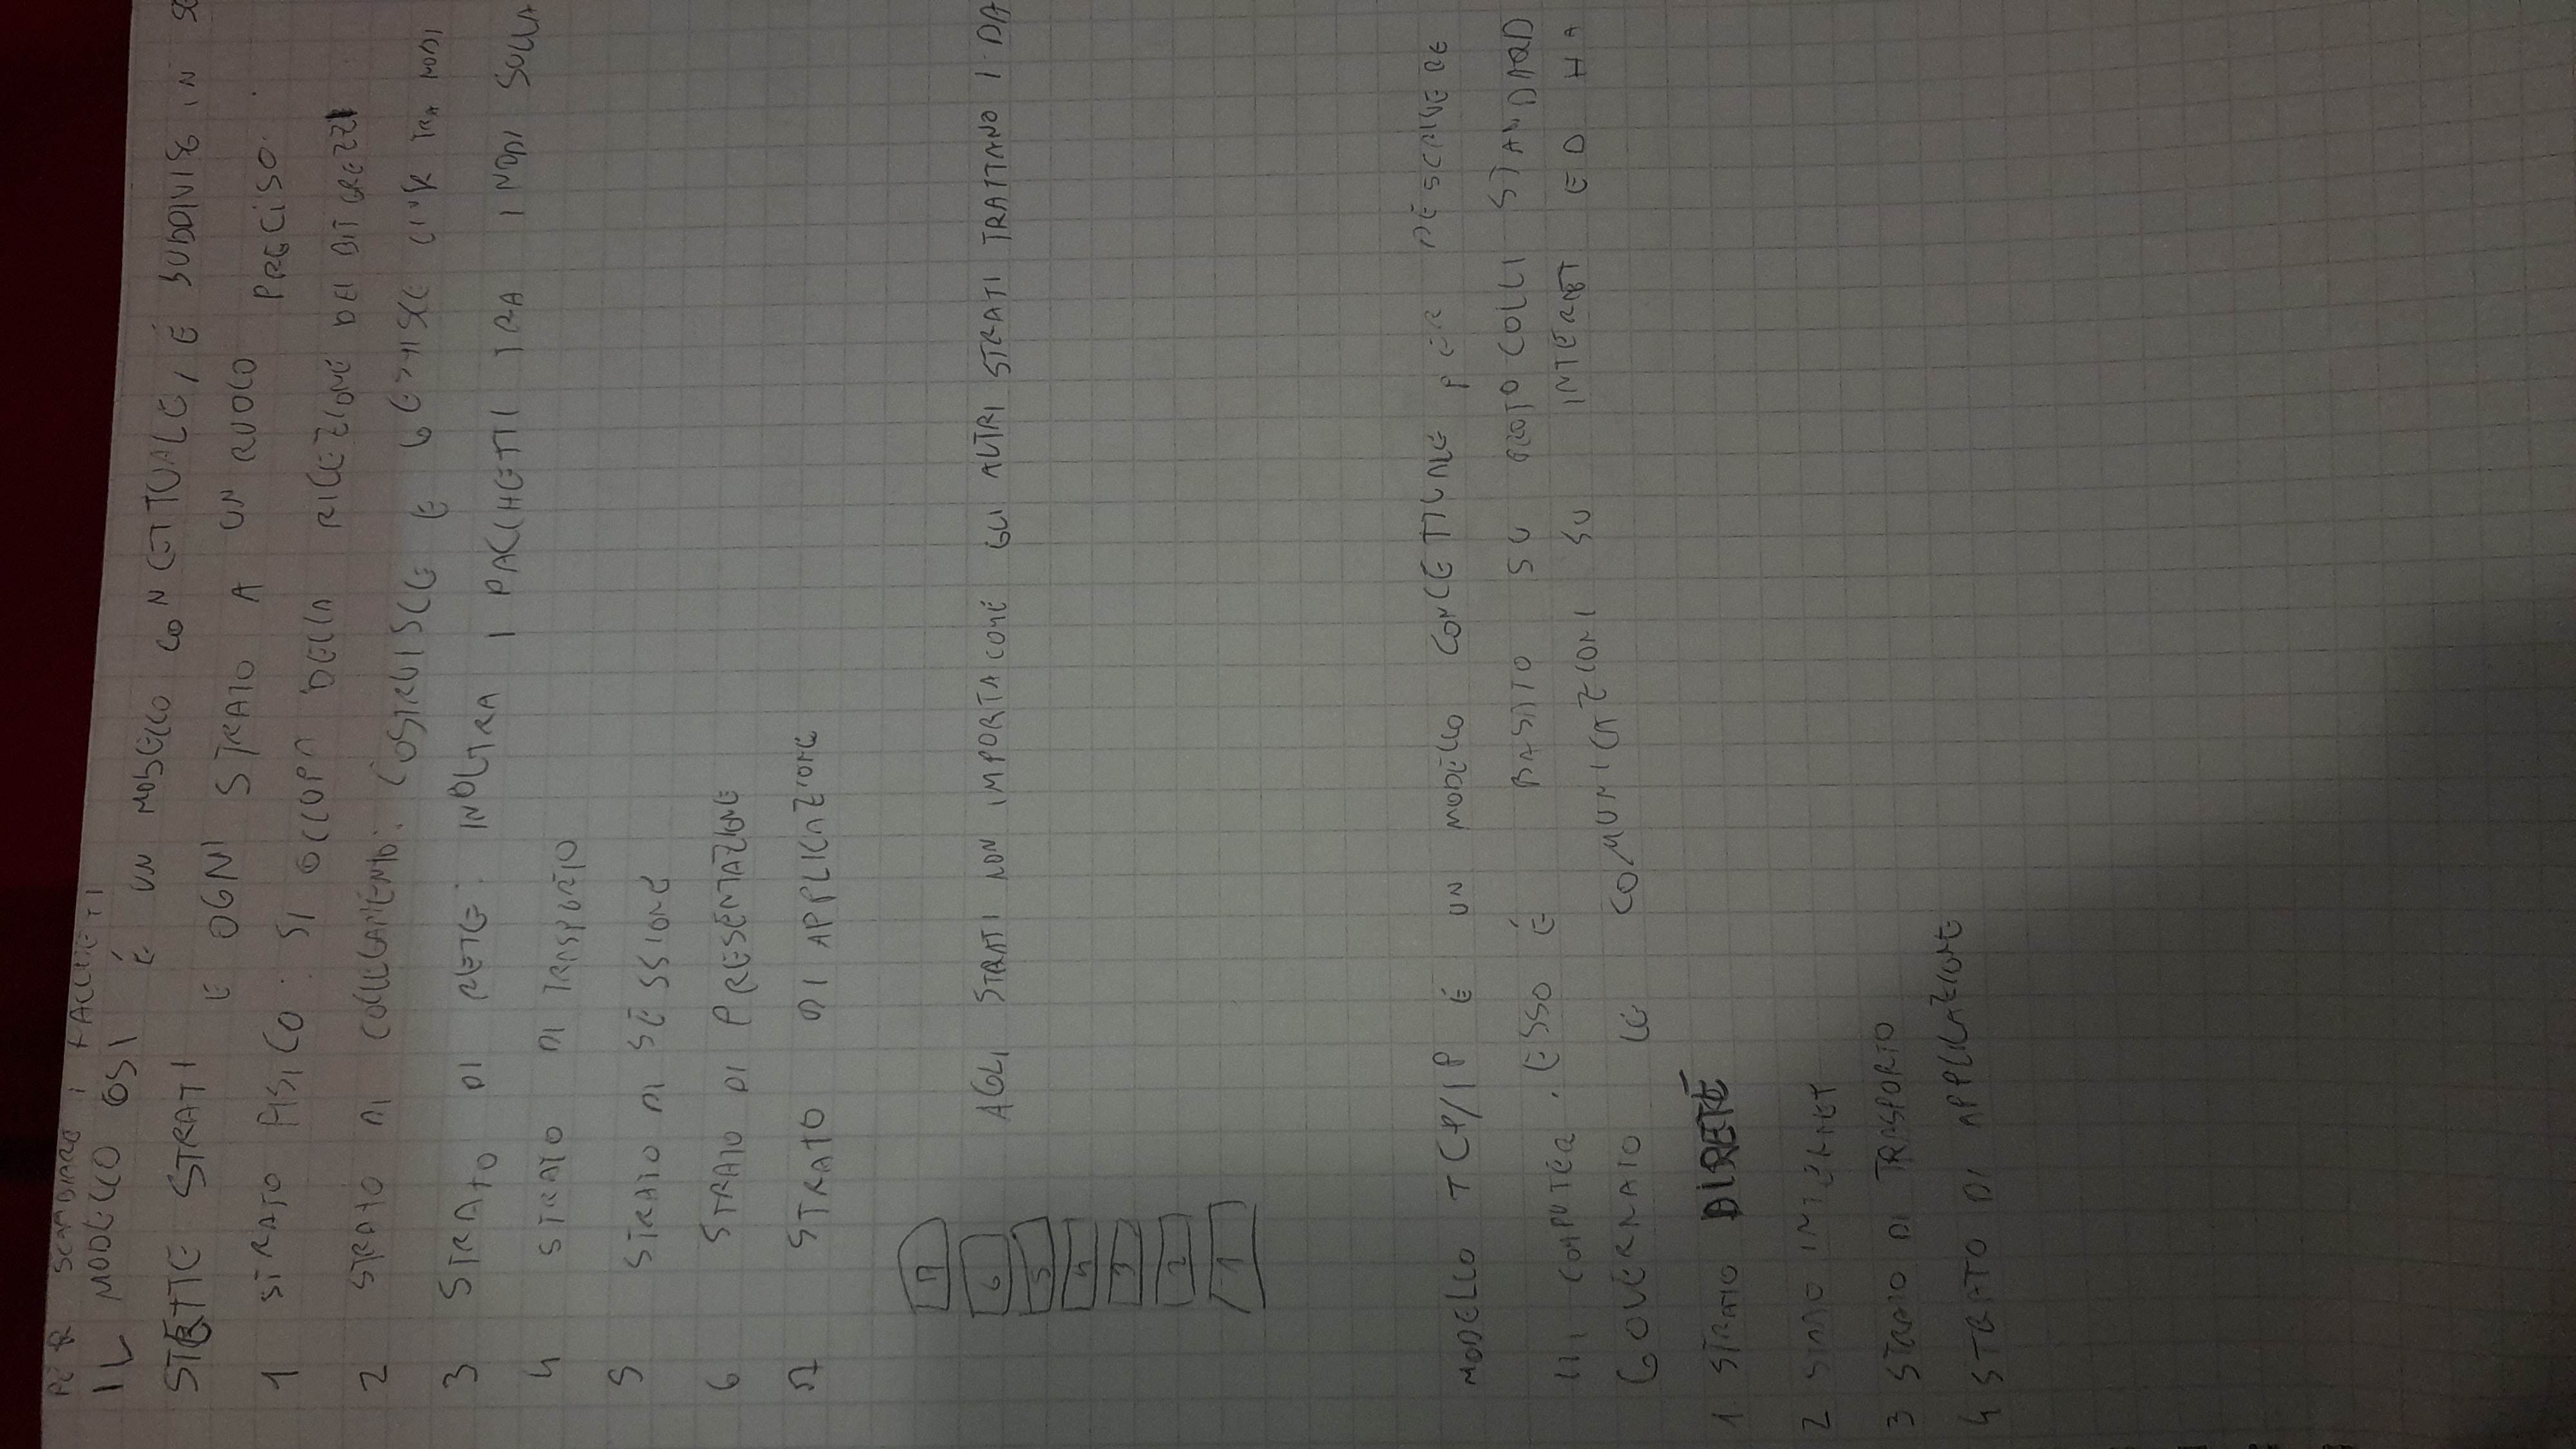 PER SCAMBIARE I PACCHETTI
IL MODELLO OSI É UN MODELLO CONCETTUALE, É SUDDIVISE IN SE
STRATI E OGNI STRATO A UN RUOLO PRECISO.
1 STRATO FISICO: SI OCCUPA DELLA RICEZIONE DEI BIT GREZZI
2 STRATO DI COLLEGAMENTO: COSTRUISCE E GESTISCE LINK TRA NODI
3 STRATO DI RETE: INOLTRA I PACCHETTI TRA I NODI SULLA
4 STRATO DI TRASPORTO
5 STRATO DI SESSIONE
6 STRATO DI PRESENTAZIONE
7 STRATO DI APPLICAZIONE
7
6 AGLI STRATI NON IMPORTA COME GLI ALTRI STRATI TRATTANO I DA
5
4
3
2
1
MODELLO TCP/IP É UN MODELLO CONCETTUALE PER DESCRIVERE
COMPUTER. ESSO É BASATO SU PROTOCOLLI STANDARD
GOVERNATO LE COMUNICAZIONI SU INTERNET ED HA
1. STRATO DI RETE
2 STRATO INTERNET
3 STRATO DI TRASPORTO
4 STRATO DI APPLICAZIONE